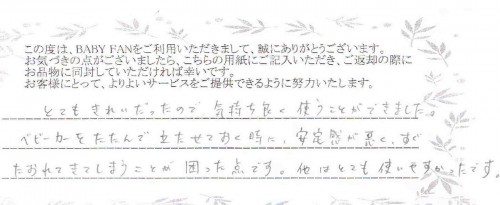 この度は、BABY FANをご利用いただきまして、誠にありがとうございます。
お気づきの点がございましたら、こちらの用紙にご記入いただき、ご返却の際に
お品物に同封していただければ幸いです。
お客様にとって、よりよいサービスをご提供できるように努力いたします。
とてもきれいだったので気持ち良く使うことができました。
ベビーカーをたたんで立たせておく時に、安定感が悪く、すぐ
たおれてきてしまうことが困った点です。他はとても使いやすかったです。